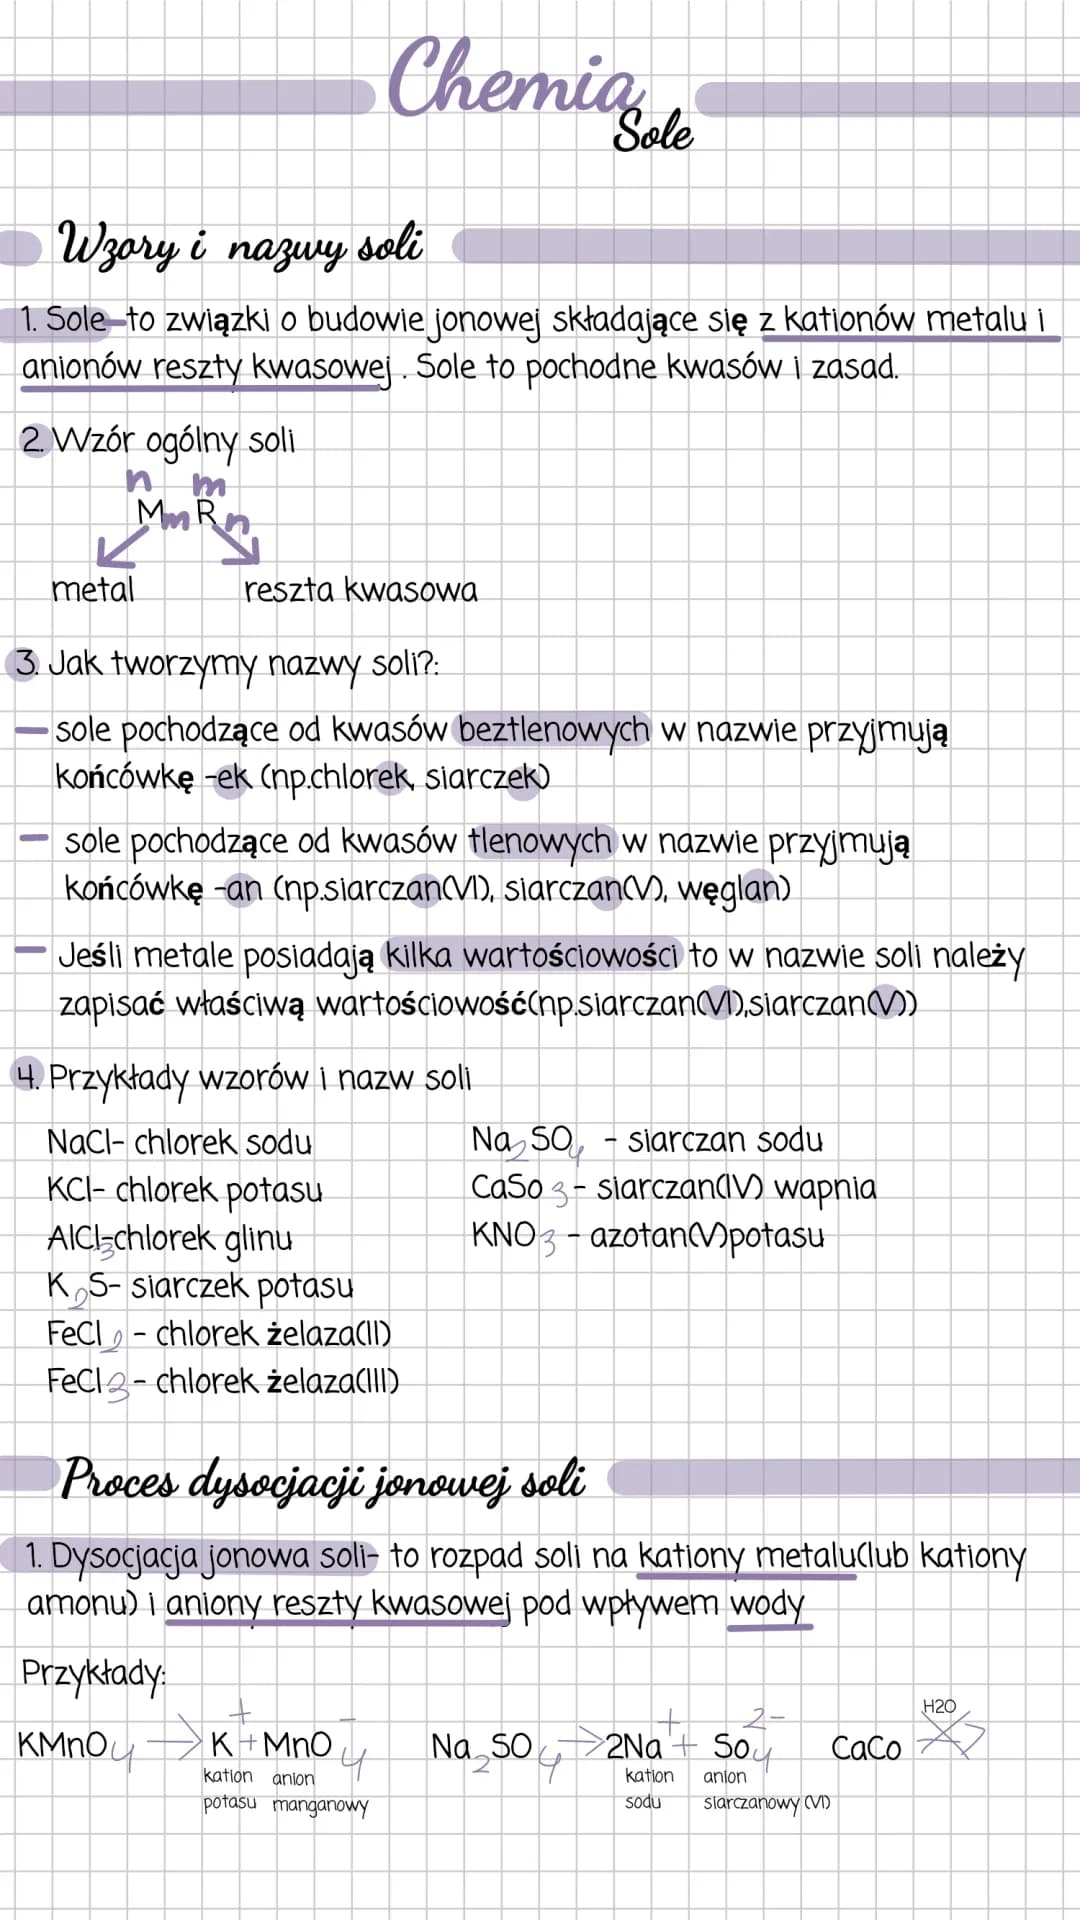 Chemia
Sole
Wzory i nazwy soli
1. Sole-to związki o budowie jonowej składające się z kationów metalu i
anionów reszty kwasowej. Sole to pochodne kwasów i zasad.
2. Wzór ogólny soli
n m
MmRn
metal reszta kwasowa
3. Jak tworzymy nazwy soli?:
- sole pochodzące od kwasów beztlenowych w nazwie przyjmują
końcówkę -ek (np.chlorek, siarczek)
- sole pochodzące od kwasów tlenowych w nazwie przyjmują
końcówkę -an (np.siarczan(VI), siarczan(V), węglan)
- Jeśli metale posiadają kilka wartościowości to w nazwie soli należy
zapisać właściwą wartościowość(np.siarczan(VI),siarczan(V))
4. Przykłady wzorów i nazw soli
NaCl- chlorek sodu
KCl- chlorek potasu
AlCl3-chlorek glinu
K2S- siarczek potasu
FeCl2 - chlorek żelaza(II)
FeCl3 - chlorek żelaza(III)
Na2SO4 - siarczan sodu
CaSo3 - siarczan(IV) wapnia
KNO3 - azotan(V)potasu
Proces dysocjacji jonowej soli
1. Dysocjacja jonowa soli- to rozpad soli na kationy metalu(lub kationy
amonu) i aniony reszty kwasowej pod wpływem wody
Przykłady:
KMnO4 → K+ + MnO4-
kation anion
potasu manganowy
Na2SO4 → 2Na+ + So4 2-
kation anion
sodu siarczanowy (VI)
H2O
CaCo